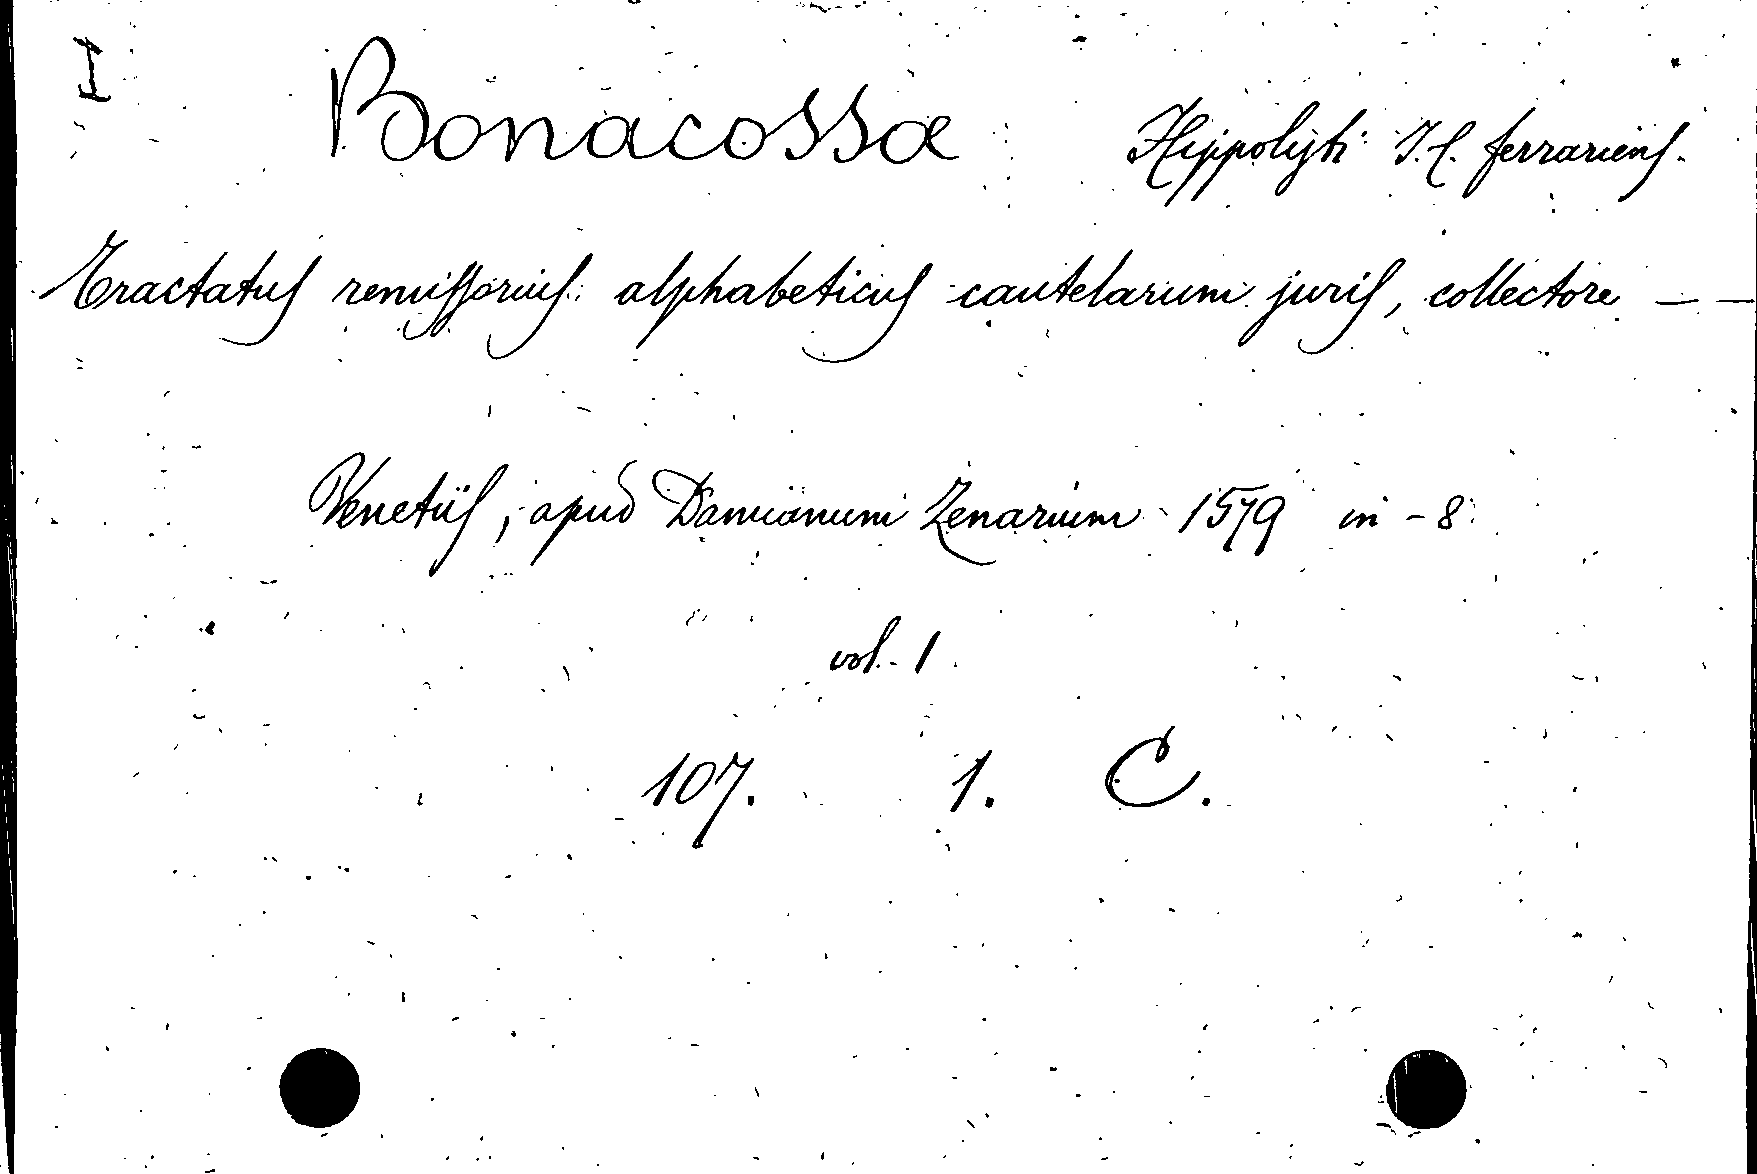 I
Bonacossæ Hippolyti J. C. ferrariens.
Tractatus remissorius alphabeticus cautelarum juris, collectore — —
Venetiis, apud Damianum Zenarium 1579 in-8
vol. 1
107. 1. C.